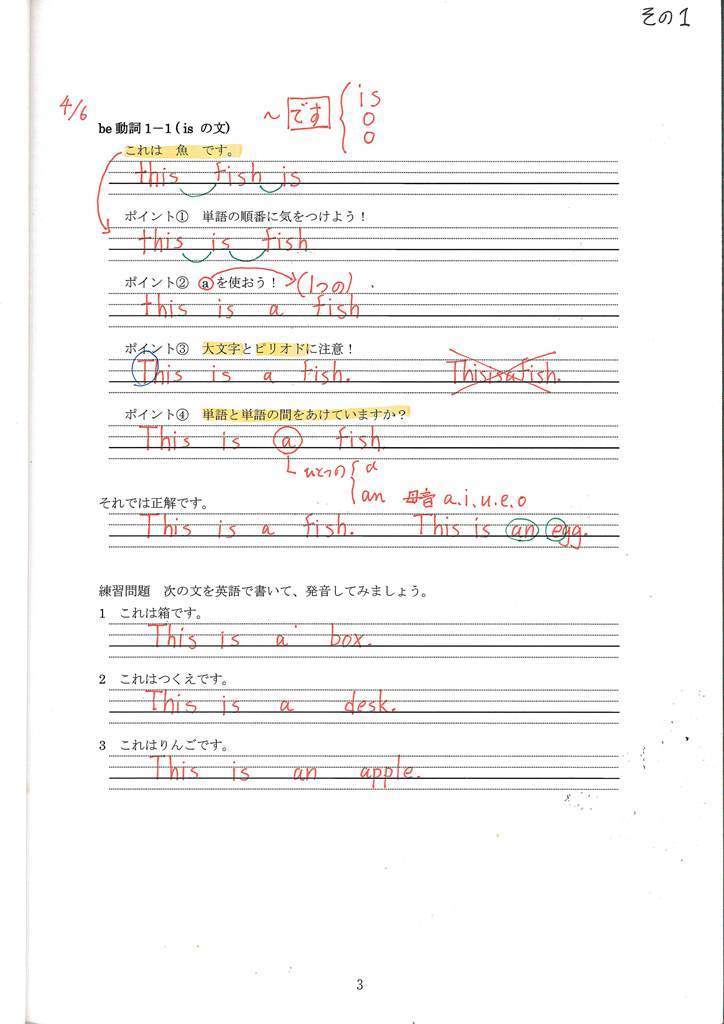 その1
4/6
be 動詞1－1 ( is の文)
～です { is
○
○
これは 魚 です。
this fish is
ポイント① 単語の順番に気をつけよう！
this is fish
ポイント② aを使おう！ (1つの)
this is a fish
ポイント③ 大文字とピリオドに注意！
This is a fish. Thisisafish.
ポイント④ 単語と単語の間をあけていますか？
This is a fish
ひとつの { a
an 母音 a.i.u.e.o
それでは正解です。
This is a fish. This is an egg.
練習問題 次の文を英語で書いて、発音してみましょう。
1 これは箱です。
This is a box.
2 これはつくえです。
This is a desk.
3 これはりんごです。
This is an apple.
3